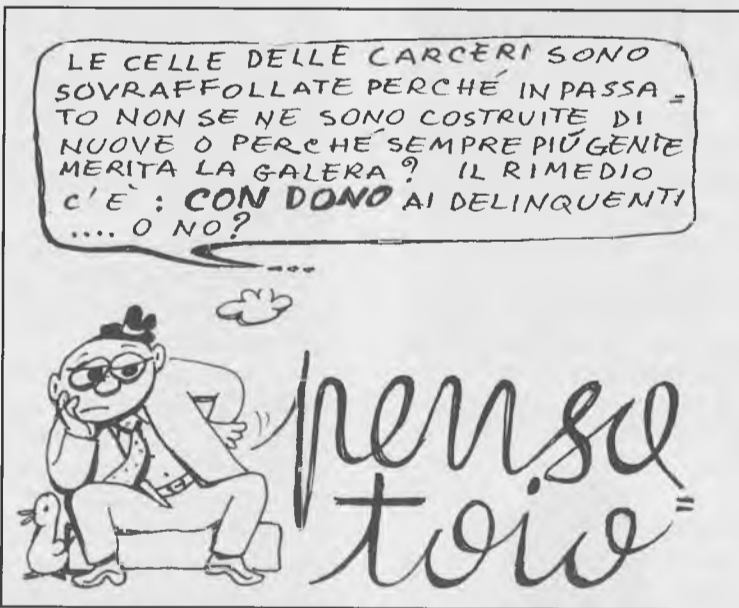 LE CELLE DELLE CARCERI SONO
SOVRAFFOLLATE PERCHÉ IN PASSA=
TO NON SE NE SONO COSTRUITE DI
NUOVE O PERCHÉ SEMPRE PIÚ GENTE
MERITA LA GALERA? IL RIMEDIO
C'E' : CON DONO AI DELINQUENTI
.... O NO?
pensa=
toio